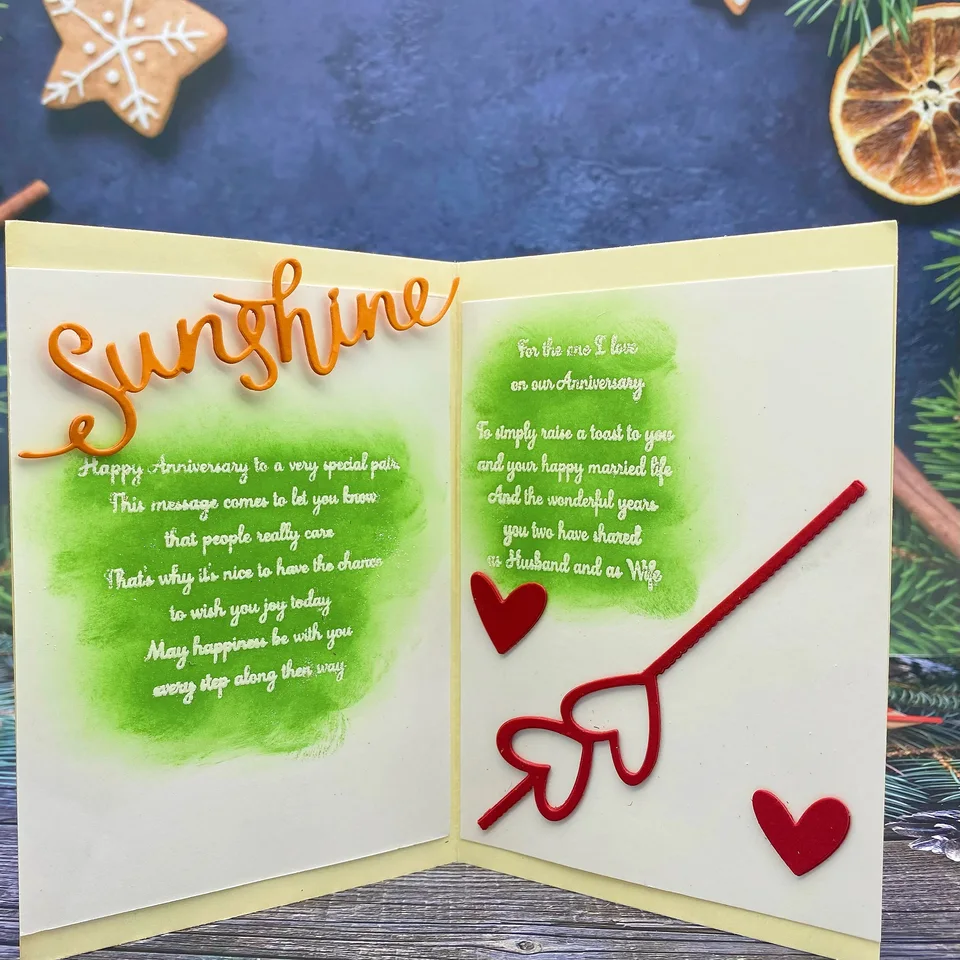 Sunshine
Happy Anniversary to a very special pair,
This message comes to let you know
that people really care
That's why it's nice to have the chance
to wish you joy today
May happiness be with you
every step along then way
For the one I love
on our Anniversary
To simply raise a toast to you
and your happy married life
And the wonderful years
you two have shared
as Husband and as Wife